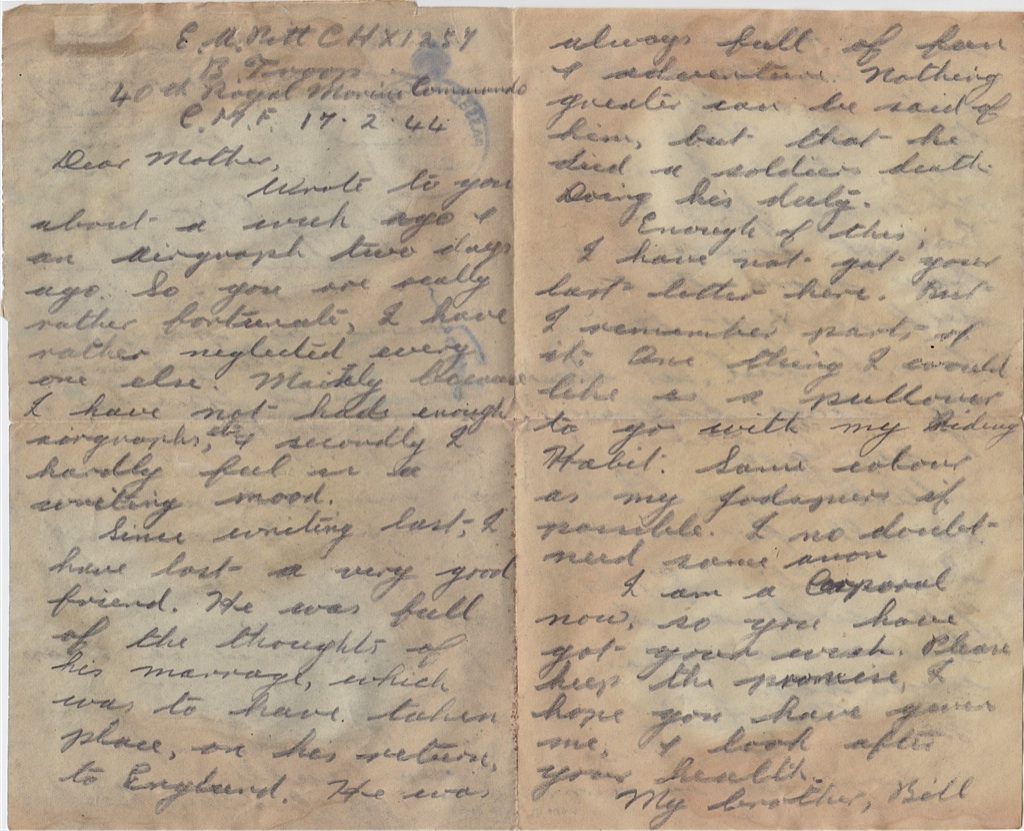 E. A. Pitt CHX1257
B Troop
40th Royal Marine Commando
C.M.F. 17.2.44
Dear Mother,
Wrote to you
about a week ago &
an airgraph two days
ago. So you are really
rather fortunate, I have
rather neglected every
one else. Mainly because
I have not hads enough
airgraphs, etc & secondly I
hardly feel in a
writing mood.
Since writing last, I
have lost a very good
friend. He was full
of the thoughts of
his marrage, which
was to have taken
place, on his return,
to England. He was
always full of fun
& adventure. Nothing
greater can be said of
him, but that he
died a soldiers death.
Doing his duty.
Enough of this;
I have not got your
last letter here. But
I remember parts of
it. One thing I would
like is a pullover
to go with my Riding
Habit. Same colour
as my Jodhpurs if
possible. I no doubt
need same anon
I am a Corporal
now, so you have
got your wish. Please
keep the promise, I
hope you have given
me, & look after
your health.
My brother, Bill